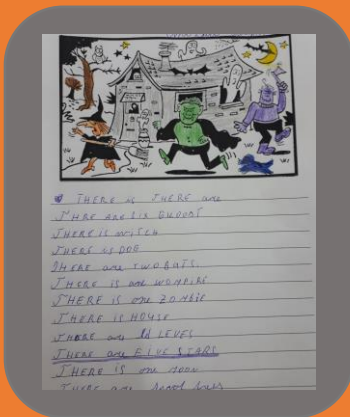 THERE is THERE are
THRE ARE SIX GHOOST
THERE IS WITCH
THERE IS DOG
THERE are TWO BATS.
THERE IS one WOMPIRE
THERE IS one ZOMBIE
THERE IS HOUSE
THERE are LEVES
THERE are FIVE STARS
THERE IS one MOON
THERE are